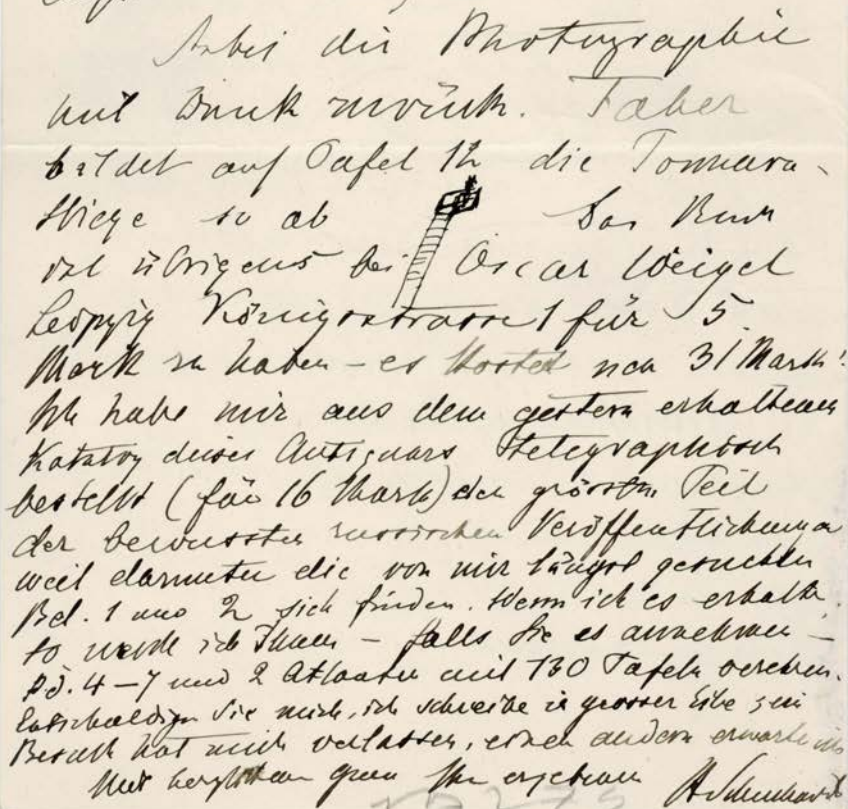 Anbei die Photographie
mit Dank zurück. Faber
bildet auf Tafel 12 die Tonnara-
stiege so ab Das Buch
ist übrigens bei Oscar Weigel
Leipzig Königsstrasse 1 für 5
Mark zu haben – es kostet neu 31 Mark!
Ich habe mir aus dem gestern erhaltenen
Katalog dieses Antiquars telegraphisch
bestellt (für 16 Mark) den grössten Teil
der bewussten russischen Veröffentlichungen
weil darunter die von mir längst gesuchten
Bd. 1 und 2 sich finden. Wenn ich es erhalte,
so werde ich Ihnen – falls Sie es annehmen –
Bd. 4–7 und 2 Atlanten mit 130 Tafeln verehren.
Entschuldigen Sie mich, ich schreibe in grosser Eile, ein
Besuch hat mich verlassen, einen andern erwarte ich
Mit herzlichem Gruss Ihr ergebener HSchuchardt